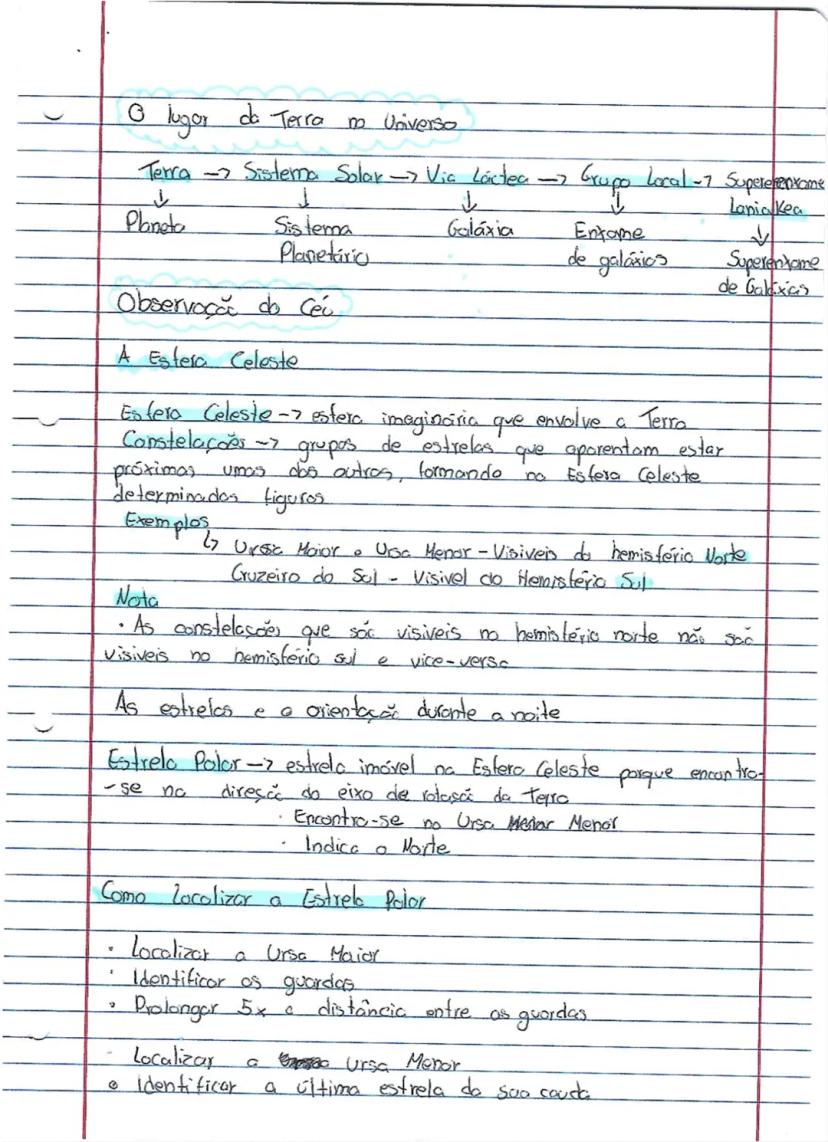 O lugar da Terra no Universo
Terra → Sistema Solar → Via Láctea → Grupo Local → Superenxame
Laniakea
↓ ↓ ↓ ↓ ↓
Planeta Sistema Galáxia Enxame Superenxame
Planetário de galáxias de Galáxias
Observação do Céu
A Esfera Celeste
Esfera Celeste → esfera imaginária que envolve a Terra
Constelações → grupos de estrelas que aparentam estar
próximas umas das outras, formando na Esfera Celeste
determinadas figuras
Exemplos
↳ Ursa Maior e Ursa Menor - Visiveis do hemisfério Norte
Cruzeiro do Sul - Visivel do Hemisfério Sul
Nota
· As constelações que são visiveis no hemisfério norte não são
visiveis no hemisfério sul e vice-versa
As estrelas e a orientação durante a noite
Estrela Polar → estrela imóvel na Esfera Celeste porque encontra-
-se na direçã do eixo de rotação da Terra
· Encontra-se na Ursa Menor
· Indica o Norte
Como localizar a Estrela Polar
· Localizar a Ursa Maior
· Identificar as guardas
· Prolongar 5x a distância entre as guardas
- Localizar a Ursa Menor
• Identificar a última estrela da sua cauda